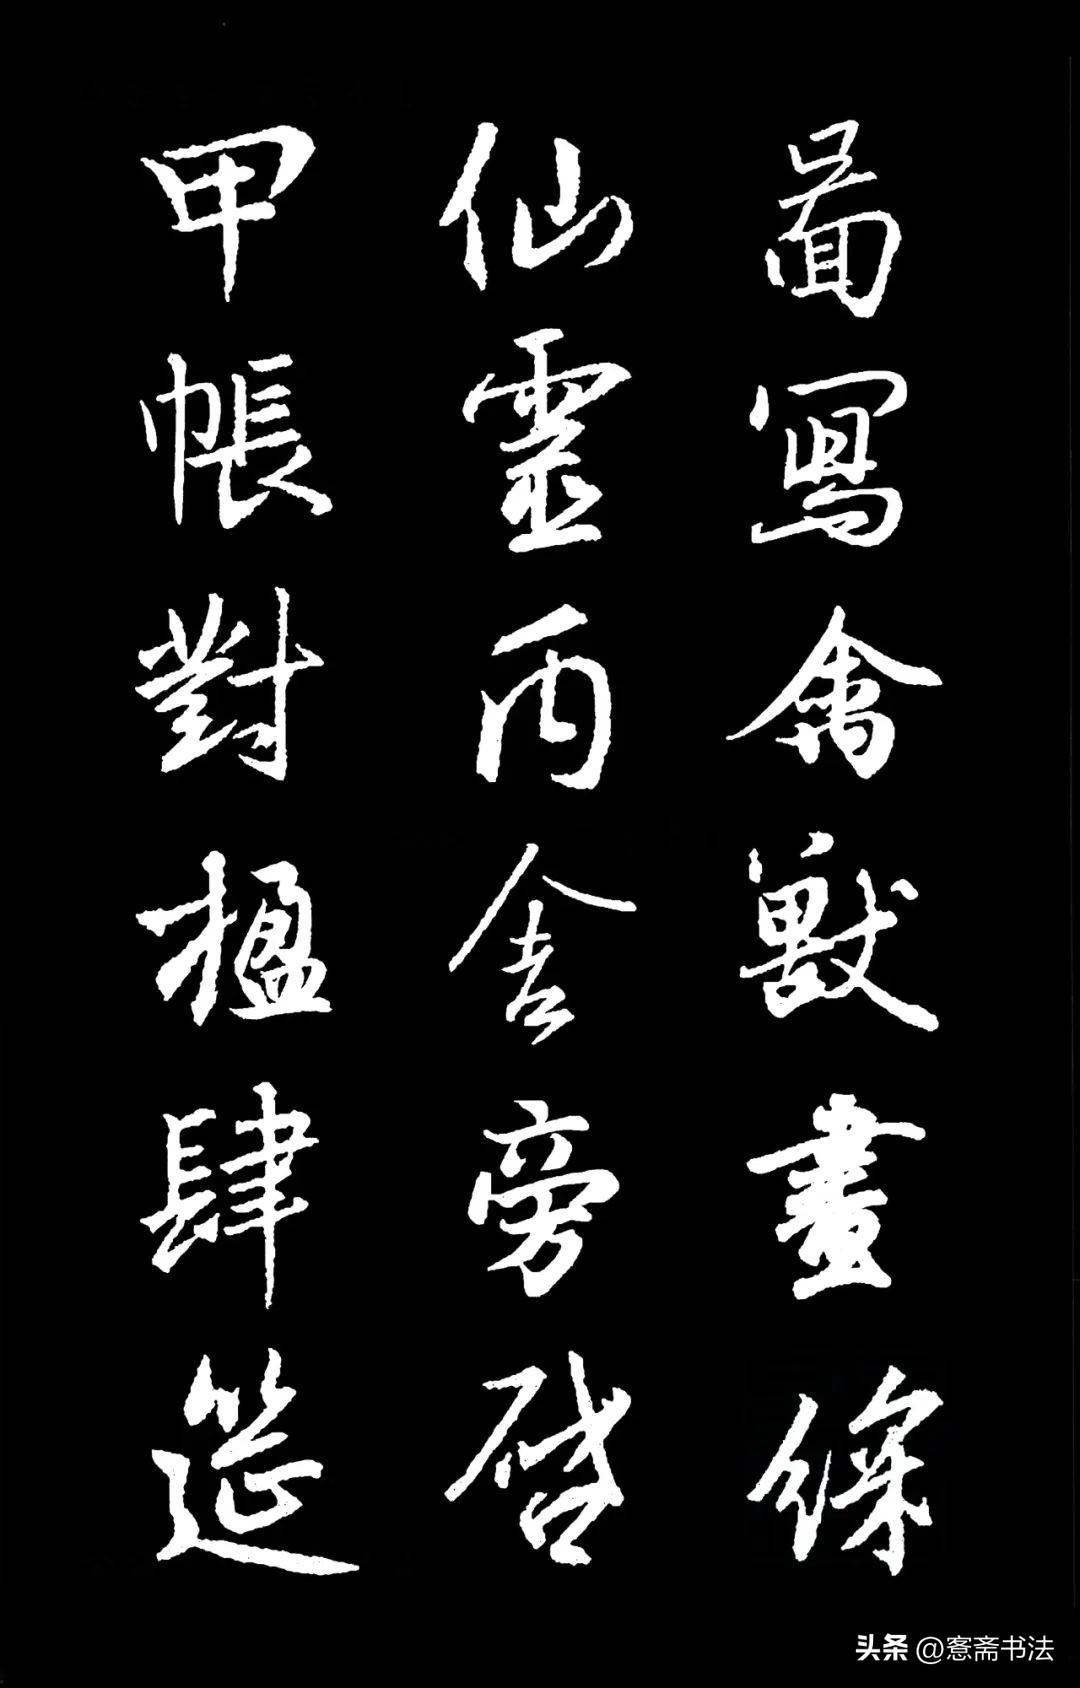 啚寫禽獸畫綵
仙靈丙舍旁啓
甲帳對楹肆筵
头条 @愙斋书法